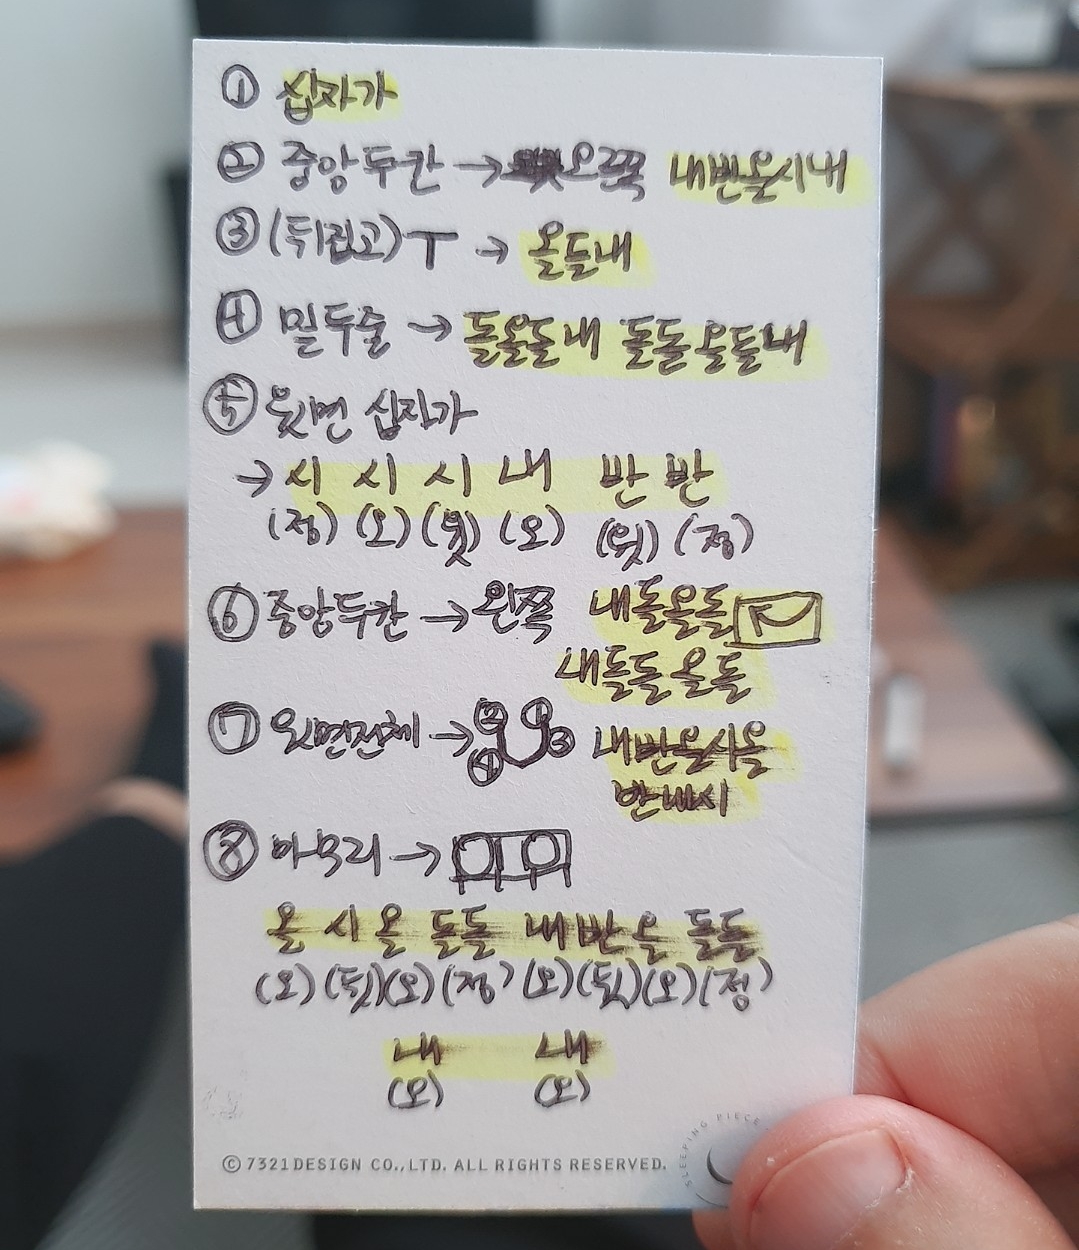 ① 십자가
② 중앙두칸 → 오른쪽 내반올시내
③ (뒤집고) ㅜ → 올돌내
④ 밑두줄 → 돌올돌내 돌돌올돌내
⑤ 윗면 십자가
→ 시 시 시 내 반 반
(정) (오) (윗) (오) (윗) (정)
⑥ 중앙두칸 → 왼쪽 내돌올돌
내돌돌올돌
⑦ 윗면전체 → ② ① ③ ④ 내반올시올
반내시
⑧ 마무리 →
올 시 올 돌돌 내 반 올 돌돌
(오) (뒷) (오) (정) (오) (뒷) (오) (정)
내 내
(오) (오)
© 7321DESIGN CO.,LTD. ALL RIGHTS RESERVED.
SLEEPING PIECE